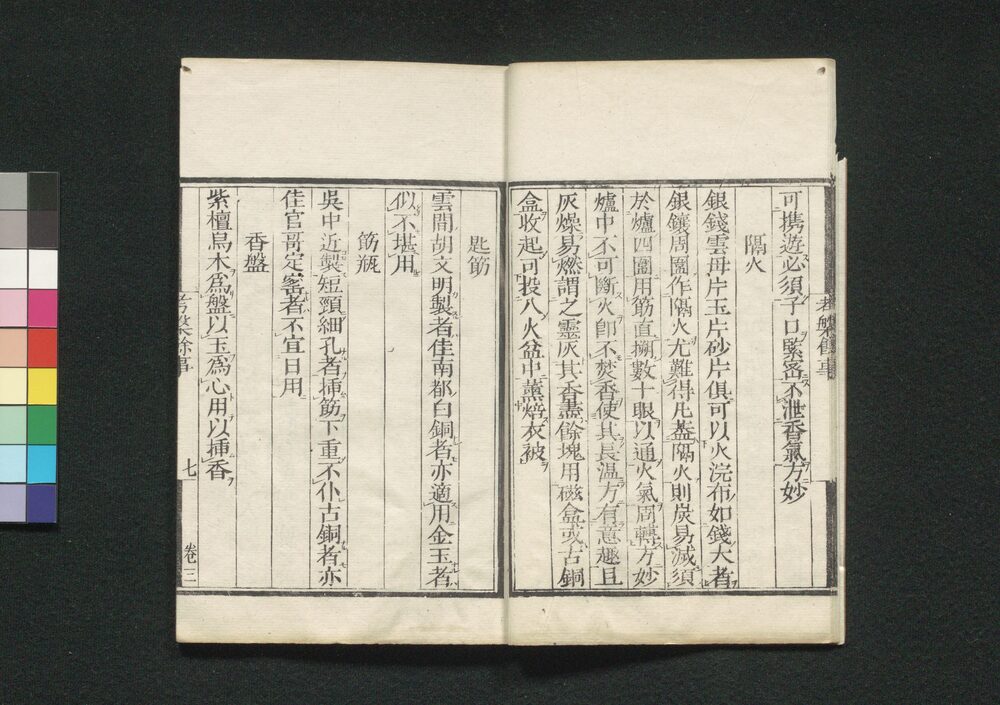 可携遊必須子口緊密不泄香氣方妙
隔火
銀錢雲母片玉片砂片俱可以火浣布如錢大者
銀鑲周圍作隔火尤難得凡葢隔火則炭易滅須
於爐四圍用筯直搠數十眼以通火氣周轉方妙
爐中不可斷火卽不焚香使其長温方有意趣且
灰燥易燃謂之靈灰其香盡餘塊用磁盒或古銅
盒收起可投入火盆中薰焙衣被
匙筯
雲間胡文明製者佳南都白銅者亦適用金玉者
似不堪用
筯瓶
吳中近製短頸細孔者揷筯下重不仆古銅者亦
佳官哥定窰者不宜日用
香盤
紫檀烏木爲盤以玉爲心用以揷香
考槃餘事
七
卷三